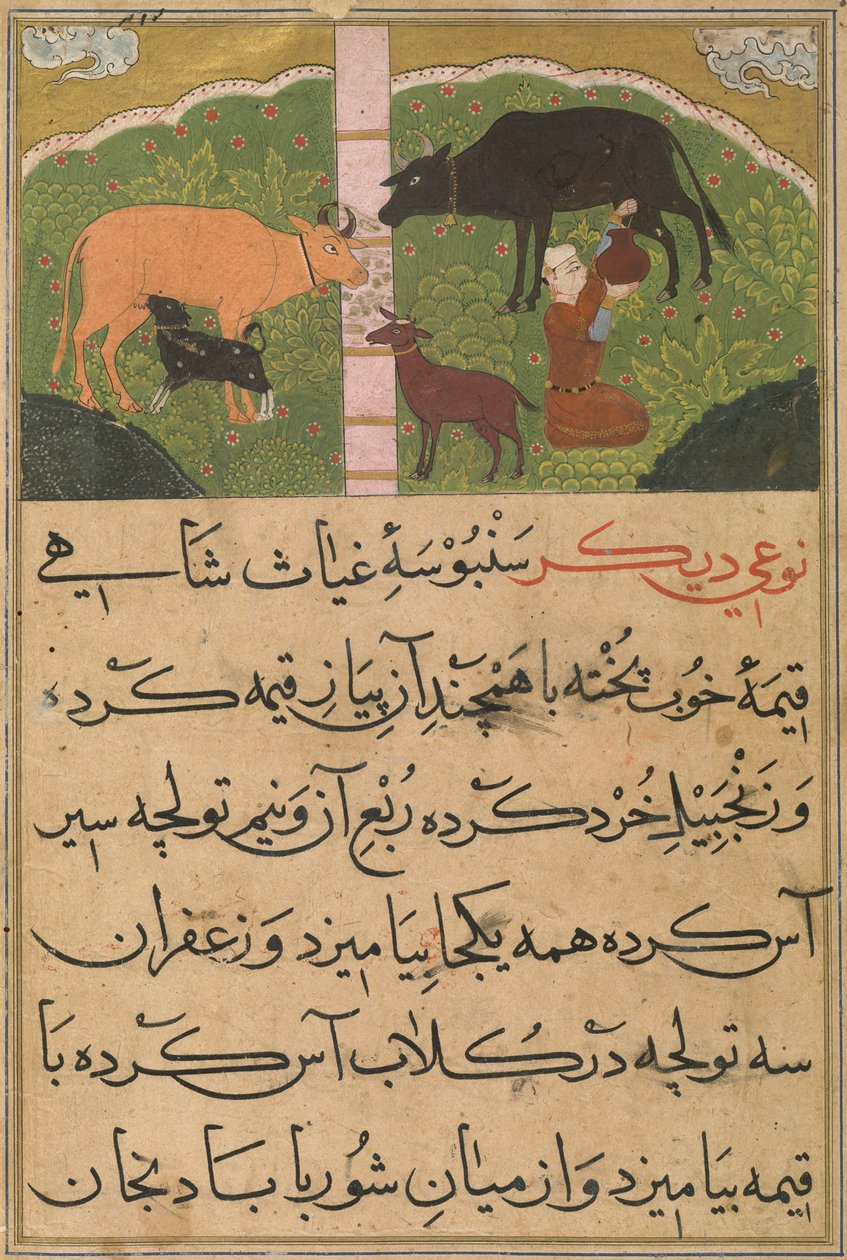 نوعي ديكر سَنْبُوْسَهٔ غياث شاهي
قِيمَهٔ خوُب پُخْتَه با هَمْچَندِ آن پِيَازِ قيمه كرده
وَ زَنْجَبِيْلِ خُرْد كرده رُبْعِ آن وَ نيم تولچه سير
آس كرده همه يكجا بِيَاميزد وَ زعفران
سه تولچه دَر كُلاب آس كرده بَا
قيمه بيَاميزد وَ از ميانِ شوُربا بَادنجان